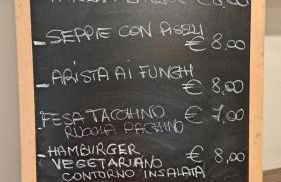 € 8,00
- SEPPIE CON PISELLI
€ 8,00
- ARISTA AI FUNGHI
€ 8,00
- FESA TACCHINO € 7,00
RUCOLA PACHINO
- HAMBURGER
VEGETARIANO € 8,00
CONTORNO INSALATA